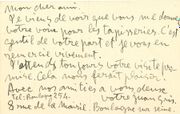 Mon cher ami.
Je viens de voir que vous me donnez
votre voix pour les tapisseries. C'est
gentil de votre part et je vous en
remercie vivement.
J'attends toujours votre visite promise. Cela nous ferait plaisir!
Avec nos amitiés à vous deux
votre Juan Gris.
8 rue de la Mairie. Boulogne sur Seine.